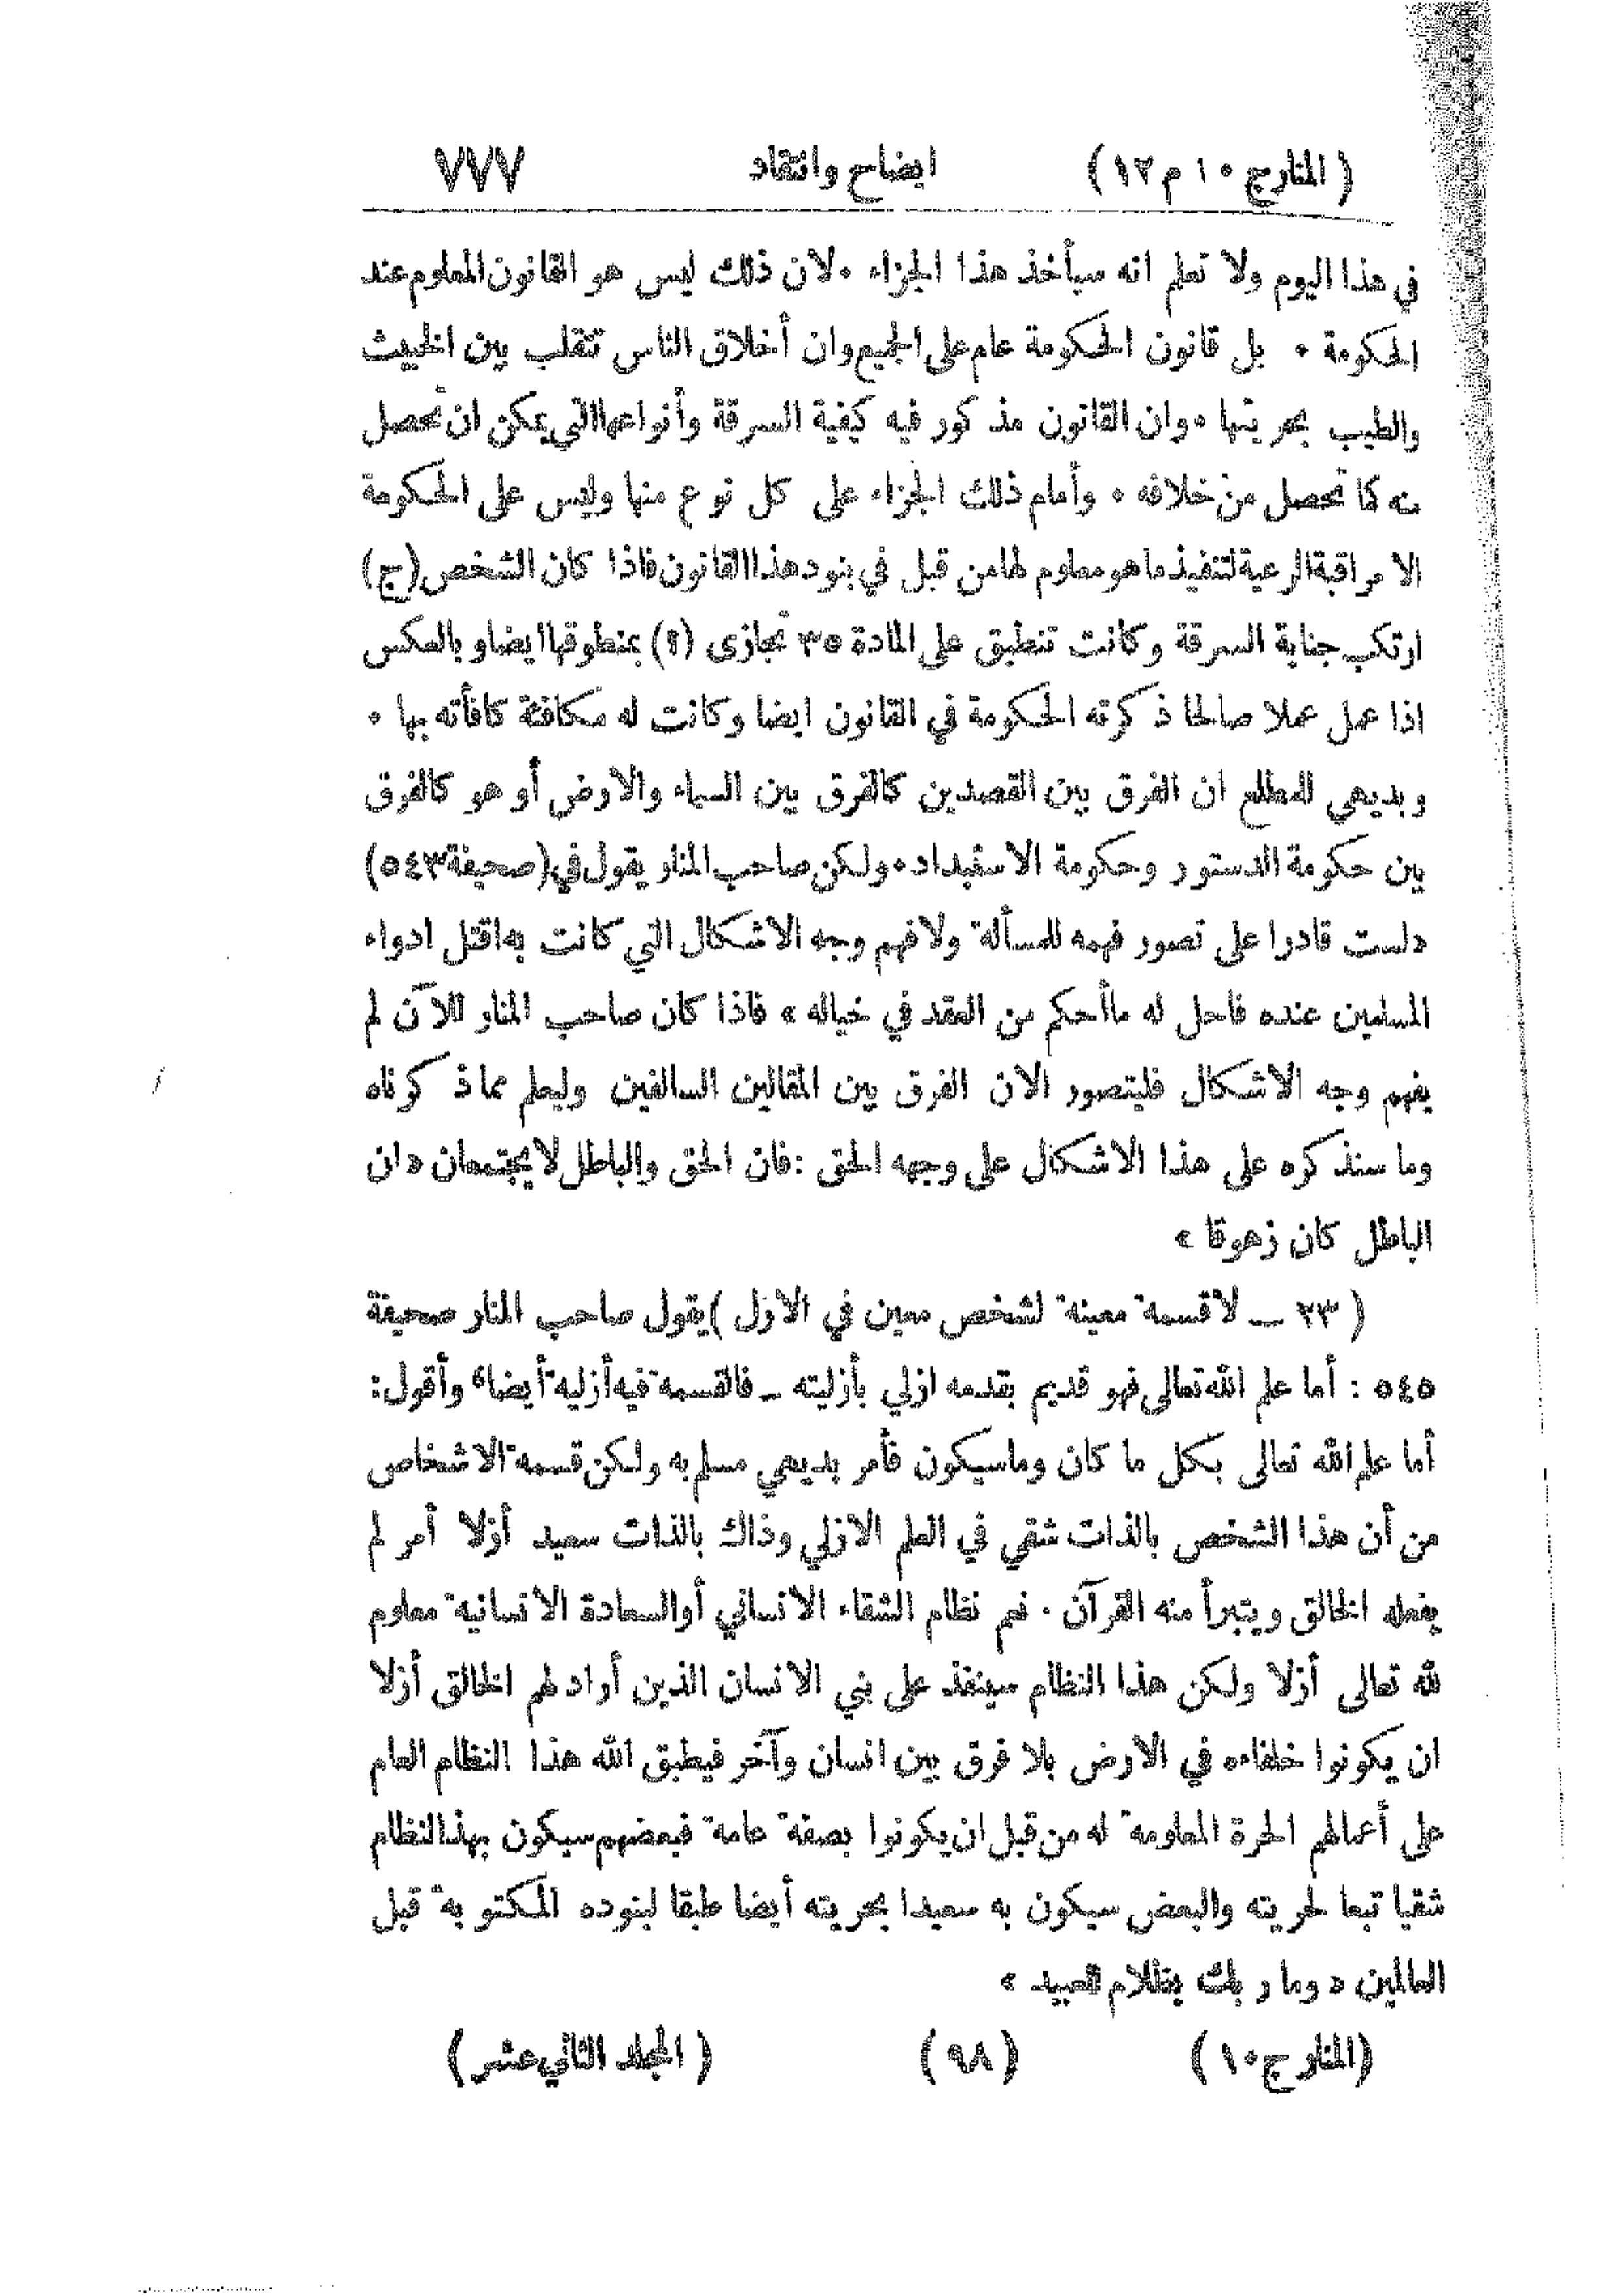 ( المنار ج ١٠ م ١٢ ) ايضاح وانتقاد ٧٧٧
في هذا اليوم ولا تعلم انه سيأخذ هذا الجزاء ٠ لان ذلك ليس هو القانون المعلوم عند
الحكومة ٠ بل قانون الحكومة عام على الجميع وان أخلاق الناس تتقلب بين الخبيث
والطيب بحريتها ٠ وان القانون مذكور فيه كيفية السرقة وأنواعها التي يمكن ان تحصل
منه كما تحصل من خلافه ٠ وأمام ذلك الجزاء على كل نوع منها وليس على الحكومة
الا مراقبة الرعية لتنفيذ ما هو معلوم لها من قبل في بنود هذا القانون فاذا كان الشخص (ج)
ارتكب جناية السرقة وكانت تنطبق على المادة ٣٥ تجازى (؟) بمنطوقها ايضا وبالعكس
اذا عمل عملا صالحا ذكرته الحكومة في القانون ايضا وكانت له مكافئة كافأته بها ٠
وبديهي للمطلع ان الفرق بين القصدين كالفرق بين السماء والارض أو هو كالفرق
بين حكومة الدستور وحكومة الاستبداد ٠ ولكن صاحب المنار يقول في (صحيفة ٥٤٣)
« لست قادرا على تصور فهمه للمسألة ولا فهم وجه الاشكال التي كانت به اقتل ادواء
المسلمين عنده فاحل له ما أحكم من العقد في خياله » فاذا كان صاحب المنار للآن لم
يفهم وجه الاشكال فليتصور الان الفرق بين المقالين السالفين وليعلم مما ذكرناه
وما سنذكره على هذا الاشكال على وجهه الحق : فان الحق والباطل لا يجتمعان « ان
الباطل كان زهوقا »
( ٢٣ ــ لا قسمة معينة لشخص معين في الازل ) يقول صاحب المنار صحيفة
٥٤٥ : أما علم الله تعالى فهو قديم بقدمه ازلي بأزليته ــ فالقسمة فيه أزلية أيضا » وأقول :
أما علم الله تعالى بكل ما كان وما سيكون فأمر بديهي مسلم به ولكن قسمة الاشخاص
من أن هذا الشخص بالذات شقي في العلم الازلي وذاك بالذات سعيد أزلا أمر لم
يفعله الخالق ويتبرأ منه القرآن . نعم نظام الشقاء الانساني أو السعادة الانسانية معلوم
لله تعالى أزلا ولكن هذا النظام سينفذ على بني الانسان الذين أراد لهم الخالق أزلا
ان يكونوا خلفاءه في الارض بلا فرق بين انسان وآخر فيطبق الله هذا النظام العام
على أعمالهم الحرة المعلومة له من قبل ان يكونوا بصفة عامة فبعضهم سيكون بهذا النظام
شقيا تبعا لحريته والبعض سيكون به سعيدا بحريته أيضا طبقا لبنوده المكتوبة قبل
العالمين « وما ربك بظلام للعبيد »
(المنار ج ١٠ ) ( ٩٨ ) ( المجلد الثاني عشر )